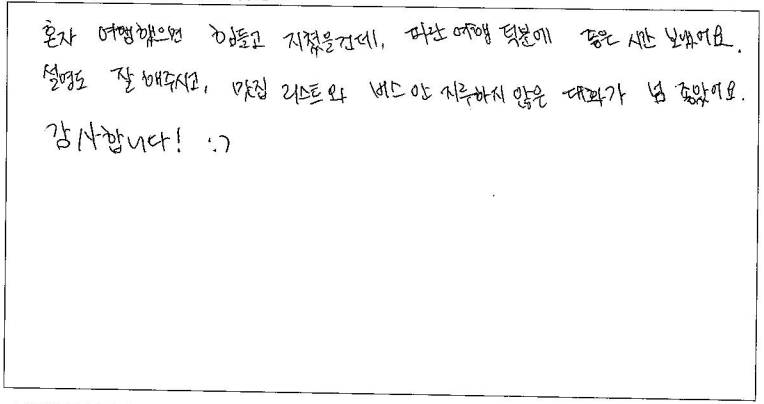 혼자 여행했으면 힘들고 지쳤을건데, 파란여행 덕분에 좋은 시간 보냈어요.
설명도 잘 해주시고, 맛집 리스트와 버스 안 지루하지 않은 대화가 넘 좋았어요.
감사합니다! :)